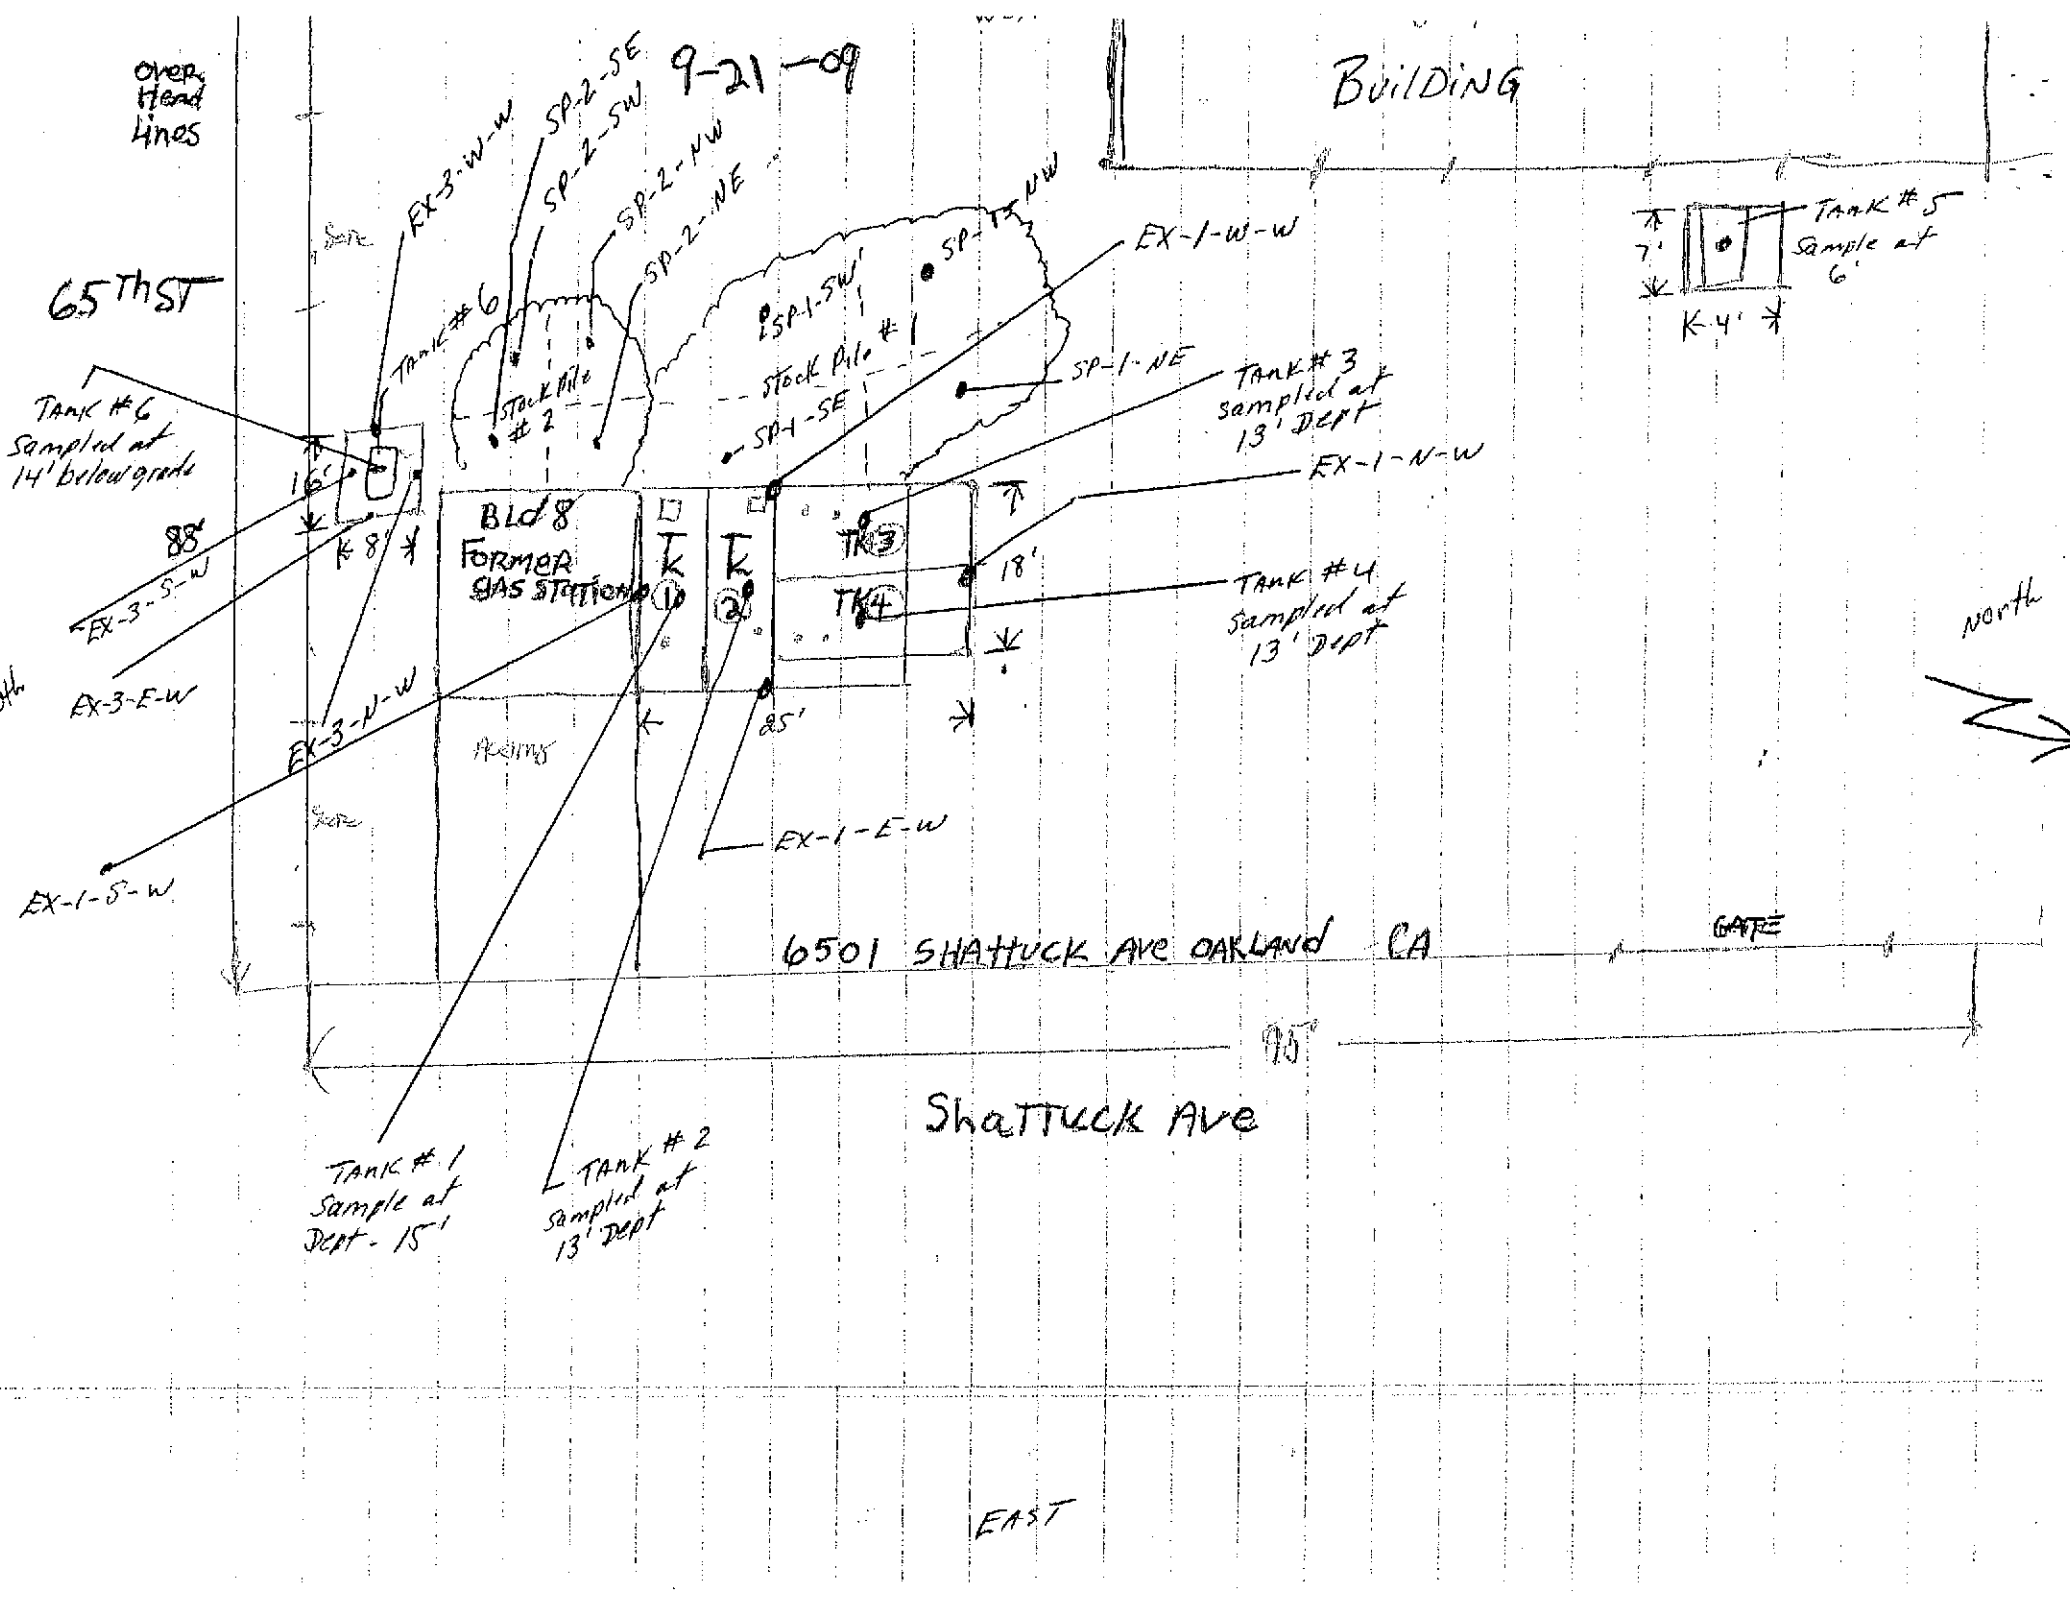 9-21-09
Over
Head
Lines
Building
EX-3-W-W
SP-2-SE
SP-2-SW
SP-2-NW
SP-2-NE
SP-1-NW
EX-1-W-W
Tank # 5
Sample at
6'
7'
4'
65Th ST
Tank # 6
SP-1-SW
Stock Pile # 1
SP-1-NE
SP-1-SE
Stock Pile
# 2
Tank # 3
Sampled at
13' Dept
Tank # 6
Sampled at
14' below grade
16'
8'
88'
EX-1-N-W
Bld 8
Former
Gas Station
TK
1
TK
2
TK 3
TK 4
18'
Tank # 4
Sampled at
13' Dept
North
EX-3-S-W
EX-3-E-W
EX-3-N-W
25'
EX-1-E-W
EX-1-S-W
6501 Shattuck Ave Oakland CA
GATE
95'
Shattuck Ave
Tank # 1
Sample at
Dept - 15'
Tank # 2
Sampled at
13' Dept
EAST